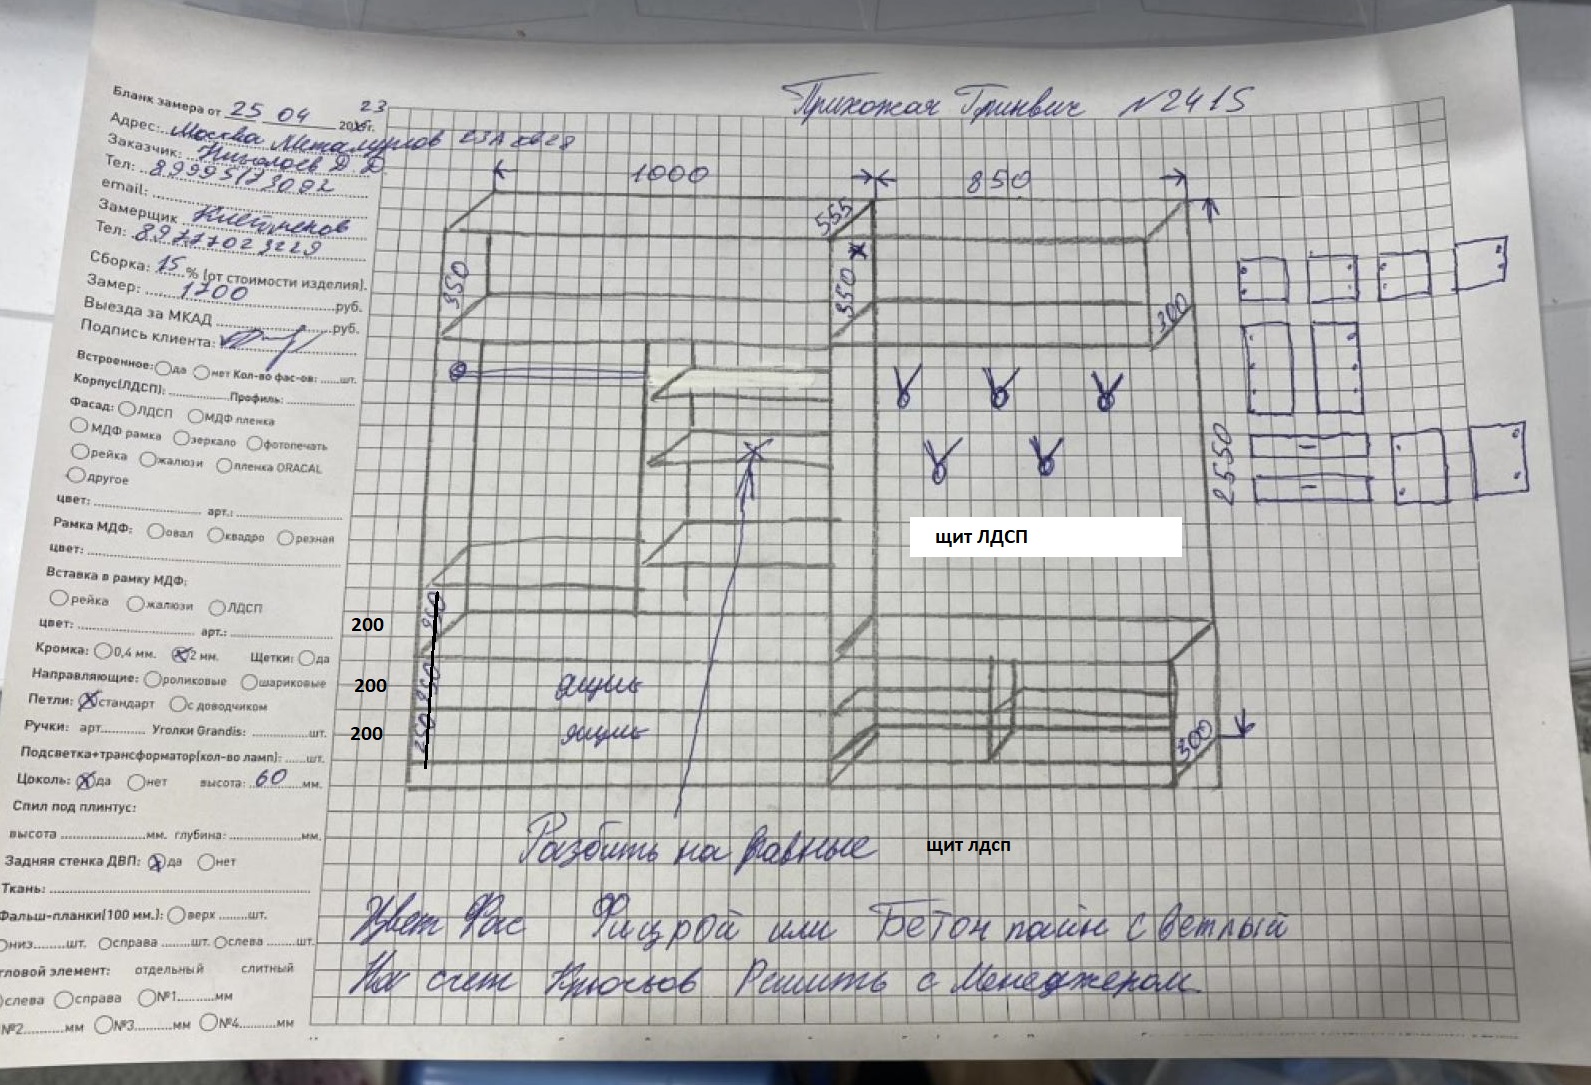 Прихожая Гринвич N2415
Бланк замера от 25 04 2023г.
Адрес: Москва Металургов 23А кв 28
Заказчик: Николаев Д.Д.
Тел:
email:
Замерщик
Тел: 89777023229
Сборка: 15 % (от стоимости изделия).
Замер: 1700 руб.
Выезда за МКАД руб.
Подпись клиента:
Встроенное: да нет Кол-во фас-ов: шт.
Корпус(ЛДСП): Профиль:
Фасад: ЛДСП МДФ пленка
МДФ рамка зеркало фотопечать
рейка жалюзи пленка ORACAL
другое
цвет: арт.:
Рамка МДФ: овал квадро резная
цвет:
Вставка в рамку МДФ:
рейка жалюзи ЛДСП
цвет: арт.:
Кромка: 0,4 мм. 2 мм. Щетки: да
Направляющие: роликовые шариковые
Петли: стандарт с доводчиком
Ручки: арт. Уголки Grandis: шт.
Подсветка+трансформатор(кол-во ламп): шт.
Цоколь: да нет высота: 60 мм.
Спил под плинтус:
высота мм. глубина: мм.
Задняя стенка ДВП: да нет
Ткань:
Фальш-планки(100 мм.): верх шт.
низ шт. справа шт. слева шт.
гловой элемент: отдельный слитный
слева справа №1 мм
№2 мм №3 мм №4 мм
1000 850
555
350 350 300
2550
щит ЛДСП
200
200 ящик
200 ящик
250
300
Разбить на равные щит лдсп
Цвет Фас Фицрой или Бетон пайн светлый
На счет Крючков Решить с Менеджером